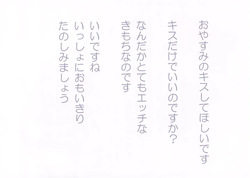 おやすみのキスしてほしいです
キスだけでいいのですか?
なんだかとてもエッチな
きもちなのです
いいですね
いっしょにおもいきり
たのしみましょう